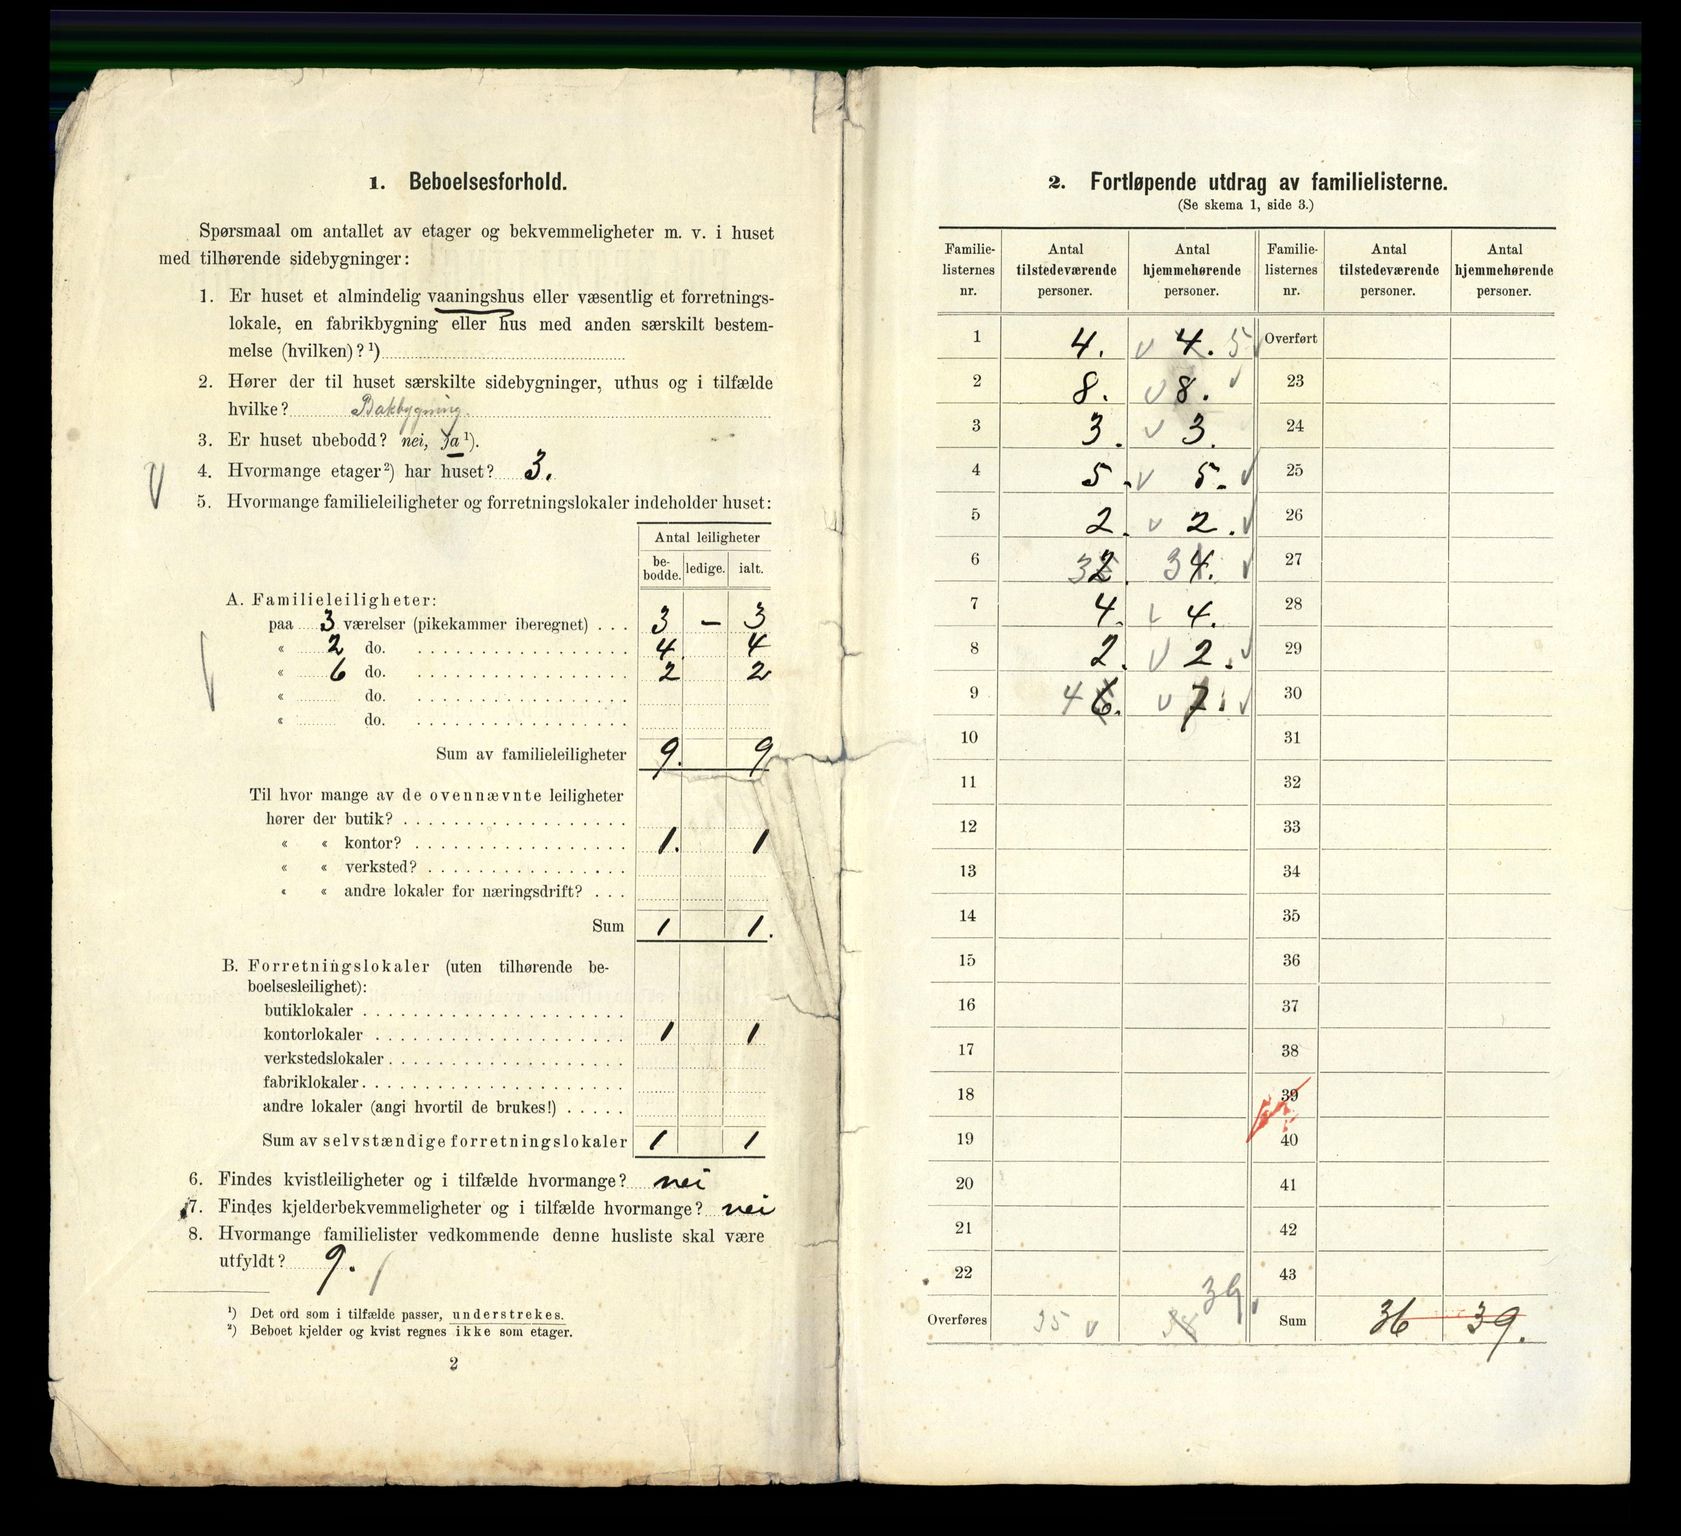 1. Beboelsesforhold.
Spørsmaal om antallet av etager og bekvemmeligheter m. v. i huset
med tilhørende sidebygninger:
1. Er huset et almindelig vaaningshus eller væsentlig et forretnings-
lokale, en fabrikbygning eller hus med anden særskilt bestem-
melse (hvilken)? ¹)
2. Hører der til huset særskilte sidebygninger, uthus og i tilfælde
hvilke? Bakbygning.
3. Er huset ubebodd? nei, ja ¹).
4. Hvormange etager ²) har huset? 3.
5. Hvormange familieleiligheter og forretningslokaler indeholder huset:
Antal leiligheter
be-
bodde. ledige. ialt.
A. Familieleiligheter:
paa 3 værelser (pikekammer iberegnet) . . . 3 – 3
« 2 do. 4. 4
« 6 do. 2 2
« do.
« do.
Sum av familieleiligheter 9. 9
Til hvor mange av de ovennævnte leiligheter
hører der butik?
« « kontor? 1. 1
« « verksted?
« « andre lokaler for næringsdrift? . . .
Sum 1 1.
B. Forretningslokaler (uten tilhørende be-
boelsesleilighet):
butiklokaler
kontorlokaler 1 1
verkstedslokaler
fabriklokaler
andre lokaler (angi hvortil de brukes!)
Sum av selvstændige forretningslokaler 1 1
6. Findes kvistleiligheter og i tilfælde hvormange? nei
7. Findes kjelderbekvemmeligheter og i tilfælde hvormange? nei
8. Hvormange familielister vedkommende denne husliste skal være
utfyldt? 9.
¹) Det ord som i tilfælde passer, understrekes.
²) Beboet kjelder og kvist regnes ikke som etager.
2
2. Fortløpende utdrag av familielisterne.
(Se skema 1, side 3.)
Familie- Antal Antal Familie- Antal Antal
listernes tilstedeværende hjemmehørende listernes tilstedeværende hjemmehørende
nr. personer. personer. nr. personer. personer.
1 4. v 4. 5 Overført
2 8. v 8. 23
3 3. v 3. 24
4 5. v 5. 25
5 2. v 2. 26
6 3 2. 3 4. 27
7 4. v 4. 28
8 2. v 2. 29
9 4 6. v 7. 30
10 31
11 32
12 33
13 34
14 35
15 36
16 37
17 38
18 39
19 40
20 41
21 42
22 43
39.
Overføres 35 v 38 Sum 36 39.